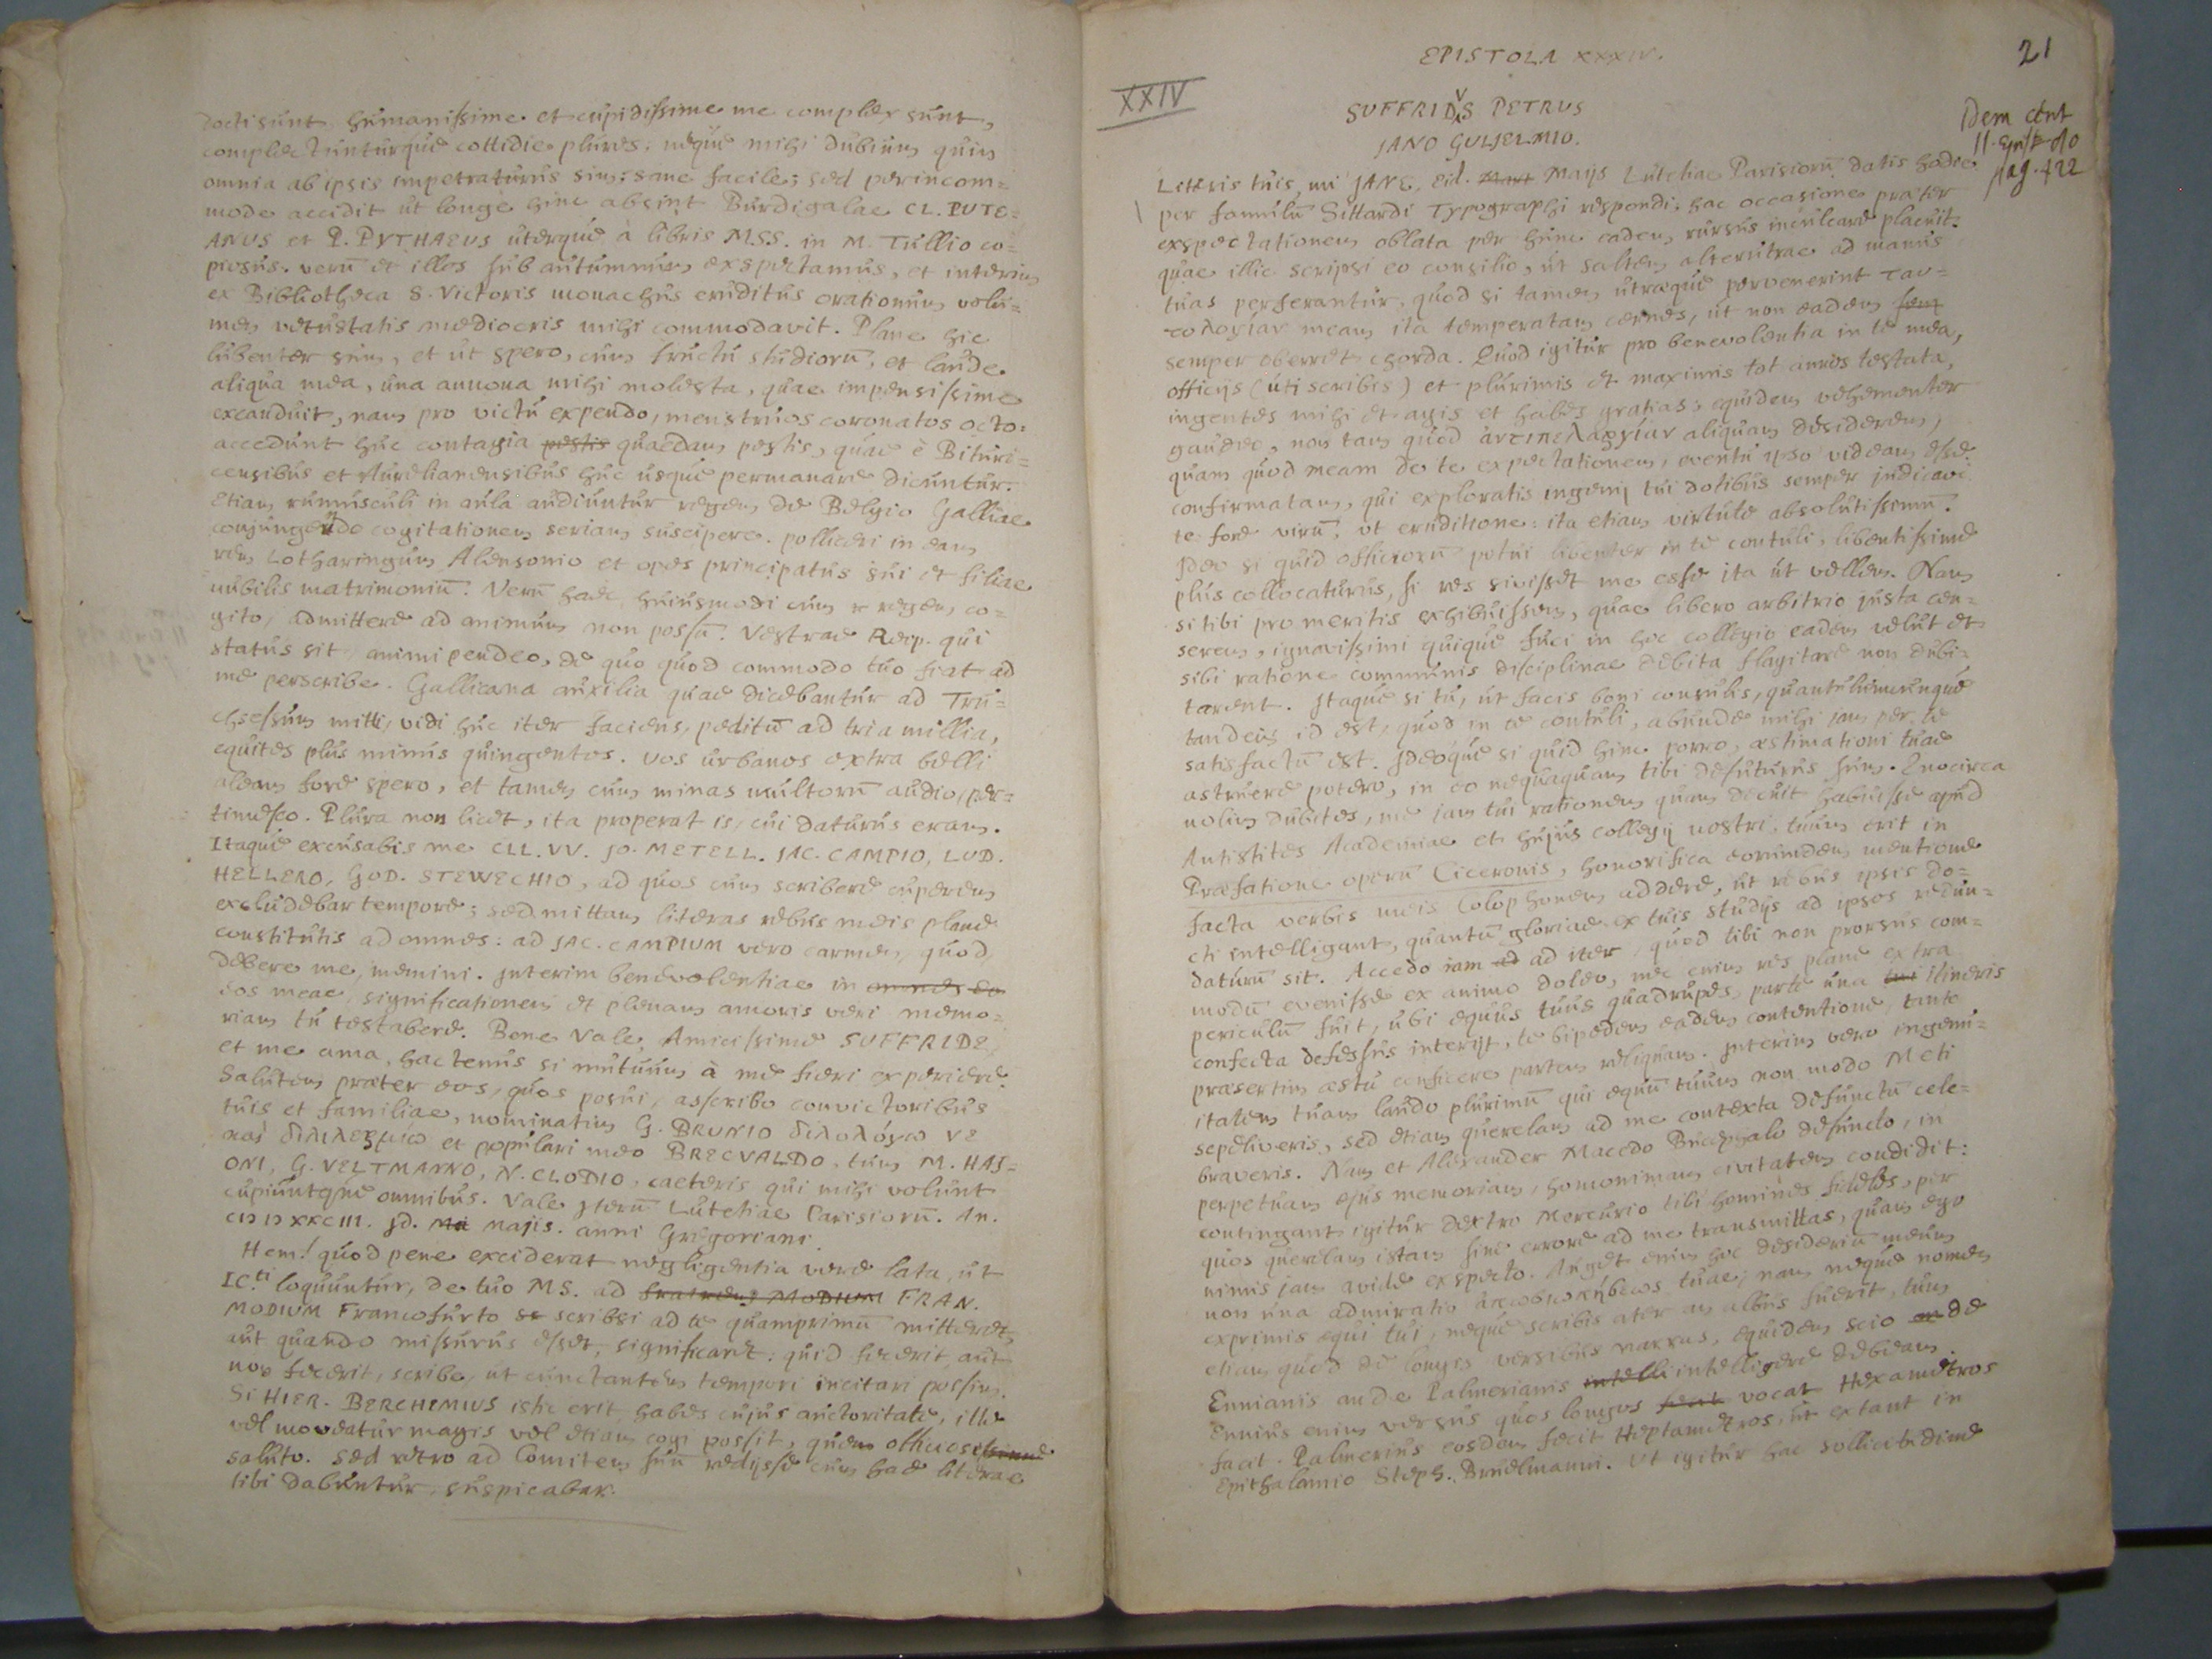 docti sunt humanissime et cupidissime me complexi sunt,
complectunturque cottidie plures: neque mihi dubium quin
omnia ab ipsis impetraturus sim; sane facile; sed perincom=
mode accidit ut longe hinc absint Burdigalae CL. PUTE=
ANUS et P. PYTHAEUS uterque à libris MSS. in M. Tullio co=
piosus. verū et illos sub autumnum exspectamus, et interim
ex Bibliotheca S. Victoris monachus eruditus orationum volu=
men vetustatis mediocris mihi commodavit. Plane hic
lubenter sum, et ut spero, cum fructu studiorū, et laude
aliqua mea, una annona mihi molesta, quae impensissime
excanduit, nam pro victu expendo, menstruos coronatos octo:
accedunt huc contagia pestis quaedam pestis, quae è Bituri=
censibus et Aurelianensibus huc usque permanare dicuntur.
Etiam rumusculi in aula audiuntur regem de Belgio Galliae
conjungendo cogitationem seriam suscipere. polliceri in eam
rem Lotharingum Alensonio et opes principatus sui et filiae
nubilis matrimoniū. Verū haec hujusmodi cum r regem co=
gito, admittere ad animum non possū. Vestrae Reip. qui
status sit animi pendeo, de quo quod commodo tuo fiat ad
me perscribe. Gallicana auxilia quae dicebantur ad Tru=
chsessum mitti, vidi huc iter faciens, peditū ad tria millia,
equites plus minus quingentos. vos urbanos extra belli
aleam fore spero, et tamen cum minas multorū audio, per=
timesco. Plura non licet, ita properat is, cui daturus eram.
Itaque excusabis me CLL. VV. JO. METELL. JAC. CAMPIO, LUD.
HELLERO, GOD. STEWECHIO, ad quos cum scribere cuperem
excludebar tempore; sed mittam literas rebus meis plane
constitutis ad omnes: ad JAC. CAMPIUM vero carmen, quod
debere me, memini. Interim benevolentiae in omnes eo
eos meae significationem et plenam amoris veri memo=
riam tu testabere. Bene Vale, Amicissime SUFFRIDE,
et me ama, hactenus si mutuum à me fieri experiere.
Salutem praeter eos, quos posui, asscribo convictoribus
tuis et familiae, nominatim G. BRUNIO
et populari meo BRECVALDO, tum M. HAS=
ONI, G. VELTMANNO, N. CLODIO, caeteris qui mihi volunt
cupiuntque omnibus. Vale Iterū Lutetiae Parisiorū. An.
Id. Ma Majis. anni Gregoriani.
Hem! quod pene exciderat negligentia vere lata, ut
ICti loquuntur, de tuo MS. ad fratrem MODIUM FRAN.
MODIUM Francofurto sc scribsi ad te quamprimū mitteret,
aut quando missurus esset, significaret: quid fecerit, aut
non fecerit, scribe, ut cunctantem tempori incitari possim.
Si HIER. BERCHEMIUS istic erit, habes cujus auctoritate, ille
vel moveatur magis vel etiam cogi possit, quem officiosissime
saluto. sed retro ad Comitem suū redijsse cum hae literae
tibi dabuntur, suspicabar.
EPISTOLA XXXIV.
21
XXIV
SUFFRIDVS PETRUS
JANO GULJELMIO.
Idem
pag. 422
Literis tuis, mi JANE, eid. Mart Majs Lutetiae Parisiorū datis hodie
per famulū Sittardi Typographi respondi: hac occasione praeter
exspectationem oblata per hunc eadem rursus inculcare placuit.
quae illic scripsi eo consilio, ut saltem alterutrae ad manus
tuas perferantur. quod si tamen utraeque pervenerint ταυ=
τολογίαν meam ita temperatam cernes, ut non eadem sem
semper oberret chorda. Quod igitur pro benevolentia in te mea,
officijs (uti scribis) et plurimis et maximis tot annos testata,
ingentes mihi et agis et habes gratias; equidem vehementer
gaudeo, non tam quod ἀντιπελαργίαν aliquam desiderem,
quam quod meam de te expectationem, eventu ipso videam esse
confirmatam, qui exploratis ingenij tui dotibus semper judicavi
te fore virū, ut eruditione: ita etiam virtute absolutissimū.
Ideo si quid officiorū potui libenter in te contuli, libentissime
plus collocaturus, si res sivisset me esse ita ut vellem. Nam
si tibi pro meritis exhibuissem, quae libero arbitrio justa cen=
serem, ignavissimi quique fuci in hoc collegio eadem velut et
sibi ratione communis disciplinae debita flagitare non dubi=
tarent. Itaque si tu, ut facis boni consulis, quantulumcunque
tandem id est, quod in te contuli, abunde mihi jam per te
satisfactū est. Ideoque si quid hinc porro, aestimationi tuae
astruere potero, in eo nequaquam tibi defuturus sum. Quocirca
nolim dubites, me jam tui rationem quam decuit habuisse apud
Antistites Academiae et hujus collegij nostri. tuum erit in
Praefatione operū Ciceronis, honorifica eorumdem mentione
facta verbis meis Colophonem addere, ut rebus ipsis do=
cti intelligant, quantū gloriae ex tuis studijs ad ipsos redun=
daturū sit. Accedo jam ad ad iter, quod tibi non prorsus com=
modū evenisse ex animo doleo, nec enim res plane extra
periculū fuit, ubi equus tuus quadrupes, parte una tui itineris
confecta defessus interijt, te bipedem eadem contentione, tanto
praesertim aestu conficere partem reliquam. Interim vero ingenu=
itatem tuam laudo plurimū qui equū tuum non modo Meti
sepeliveris, sed etiam querelam ad me contexta defunctū cele=
braveris. Nam et Alexander Macedo Bucephalo defuncto, in
perpetuam ejus memoriam, homonimam civitatem condidit:
contingant igitur dextro Mercurio tibi homines fideles, per
quos querelam istam sine errore ad me transmittas, quam ego
nimis jam avide exspecto. Auget enim hoc desideriū meum
non una admiratio tuae; nam neque nomen
exprimis equi tui, neque scribis ater an albus fuerit, tum
etiam quod de longis versibus narras, equidem scio an de
Ennianis an de Palmerianis intelli intelligere debeam.
Ennius enim versus quos longos facit vocat Hexametros
facit. Palmerius eosdem fecit Heptametros, ut extant in
Epithalamio Steph. Bruelmanni. Ut igitur hac sollicitudine